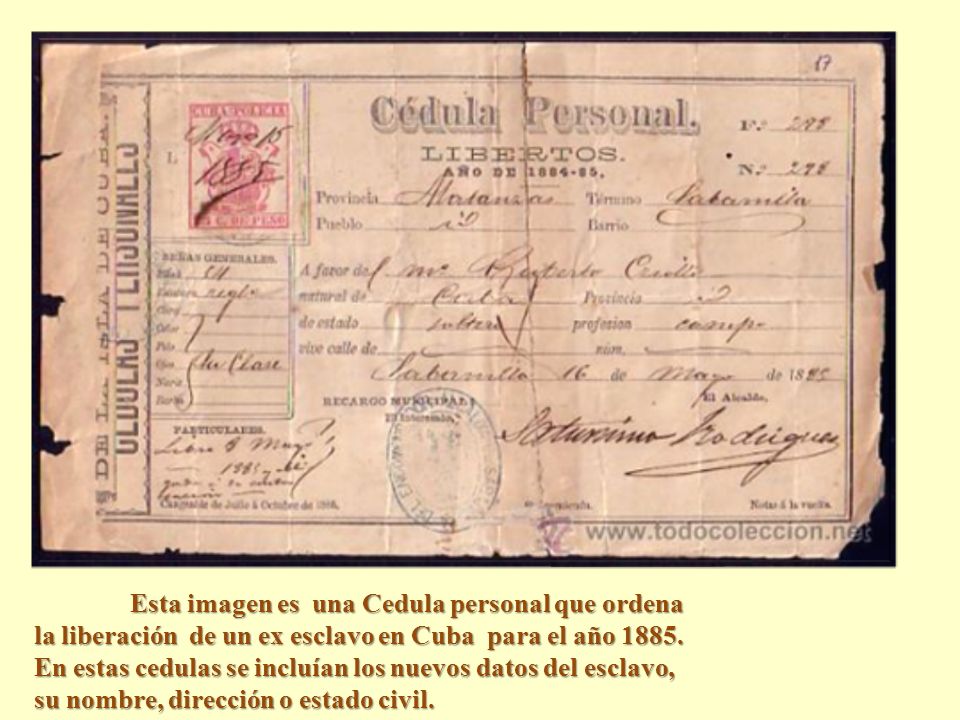 17
Cédula Personal.
LIBERTOS.
AÑO DE 1884-85.
F.º 298
N.º 298
DE LA ISLA DE CUBA.
CEDULAS PERSONALES
CUBA POLICIA
Mayo 15
1885
C. DE PESO
Provincia Matanzas Término Sabanilla
Pueblo id Barrio
SEÑAS GENERALES.
Edad
Estatura regl
Color
Pelo
Ojos su Clase
Nariz
Barba
A favor de Ruperto Criollo
natural de Cuba Provincia id
de estado soltero profesion campo
vive calle de núm.
Sabanilla 16 de Mayo de 1885
RECARGO MUNICIPAL
El Interesado,
El Alcalde,
Saturnino Rodriguez
PARTICULARES.
Libre 8 Mayo
1885
Cangeable de Julio á Octubre de 1885.
Notas á la vuelta.
www.todocoleccion.net
Esta imagen es una Cedula personal que ordena
la liberación de un ex esclavo en Cuba para el año 1885.
En estas cedulas se incluían los nuevos datos del esclavo,
su nombre, dirección o estado civil.